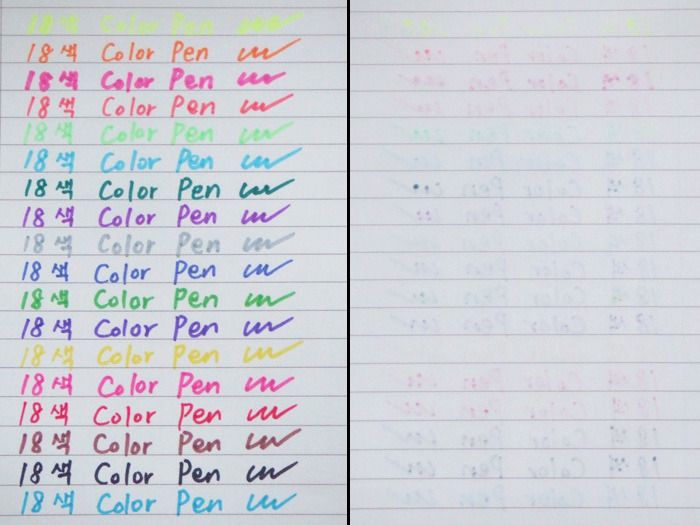 18색 Color Pen
18색 Color Pen
18색 Color Pen
18색 Color Pen
18색 Color Pen
18색 Color Pen
18색 Color Pen
18색 Color Pen
18색 Color Pen
18색 Color Pen
18색 Color Pen
18색 Color Pen
18색 Color Pen
18색 Color Pen
18색 Color Pen
18색 Color Pen
18색 Color Pen
18색 Color Pen